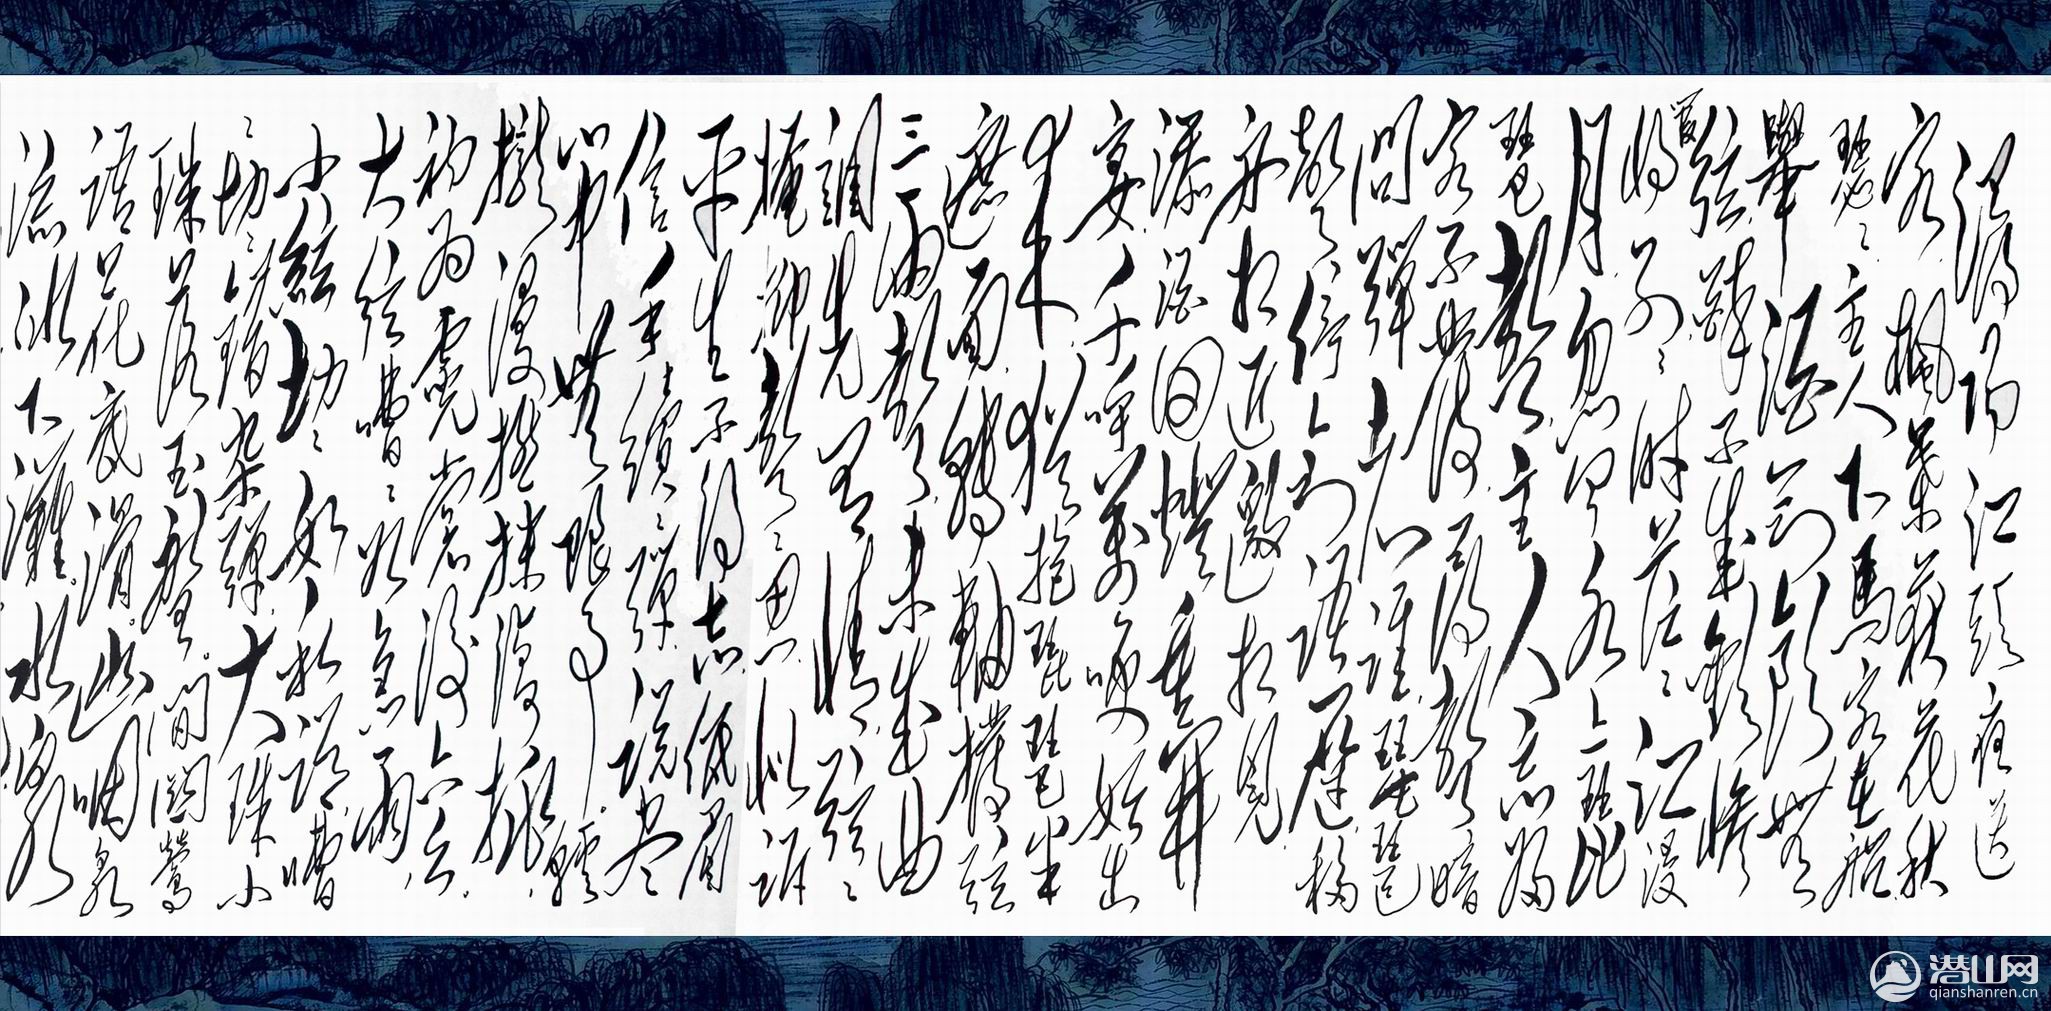 潯陽江頭夜送
客楓葉荻花秋
瑟瑟主人下馬客在船
舉酒欲飲無
管弦醉不成歡慘
將別別時茫茫江浸
月忽聞水上琵
琶聲主人忘歸
客不發尋聲暗
問彈者誰琵琶
聲停欲語遲移
船相近邀相見
添酒回燈重開
宴千呼萬喚始出
來猶抱琵琶半
遮面轉軸撥弦
三兩聲未成曲
調先有情弦弦
掩抑聲聲思似訴
平生不得志低眉
信手續續彈說盡
心中無限事輕
攏慢撚抹復挑
初為霓裳後六么
大弦嘈嘈如急雨
小弦切切如私語嘈
嘈切切錯雜彈大珠小
珠落玉盤間關鶯
語花底滑幽咽泉
流冰下灘水泉
潜山网
qianshanren.cn